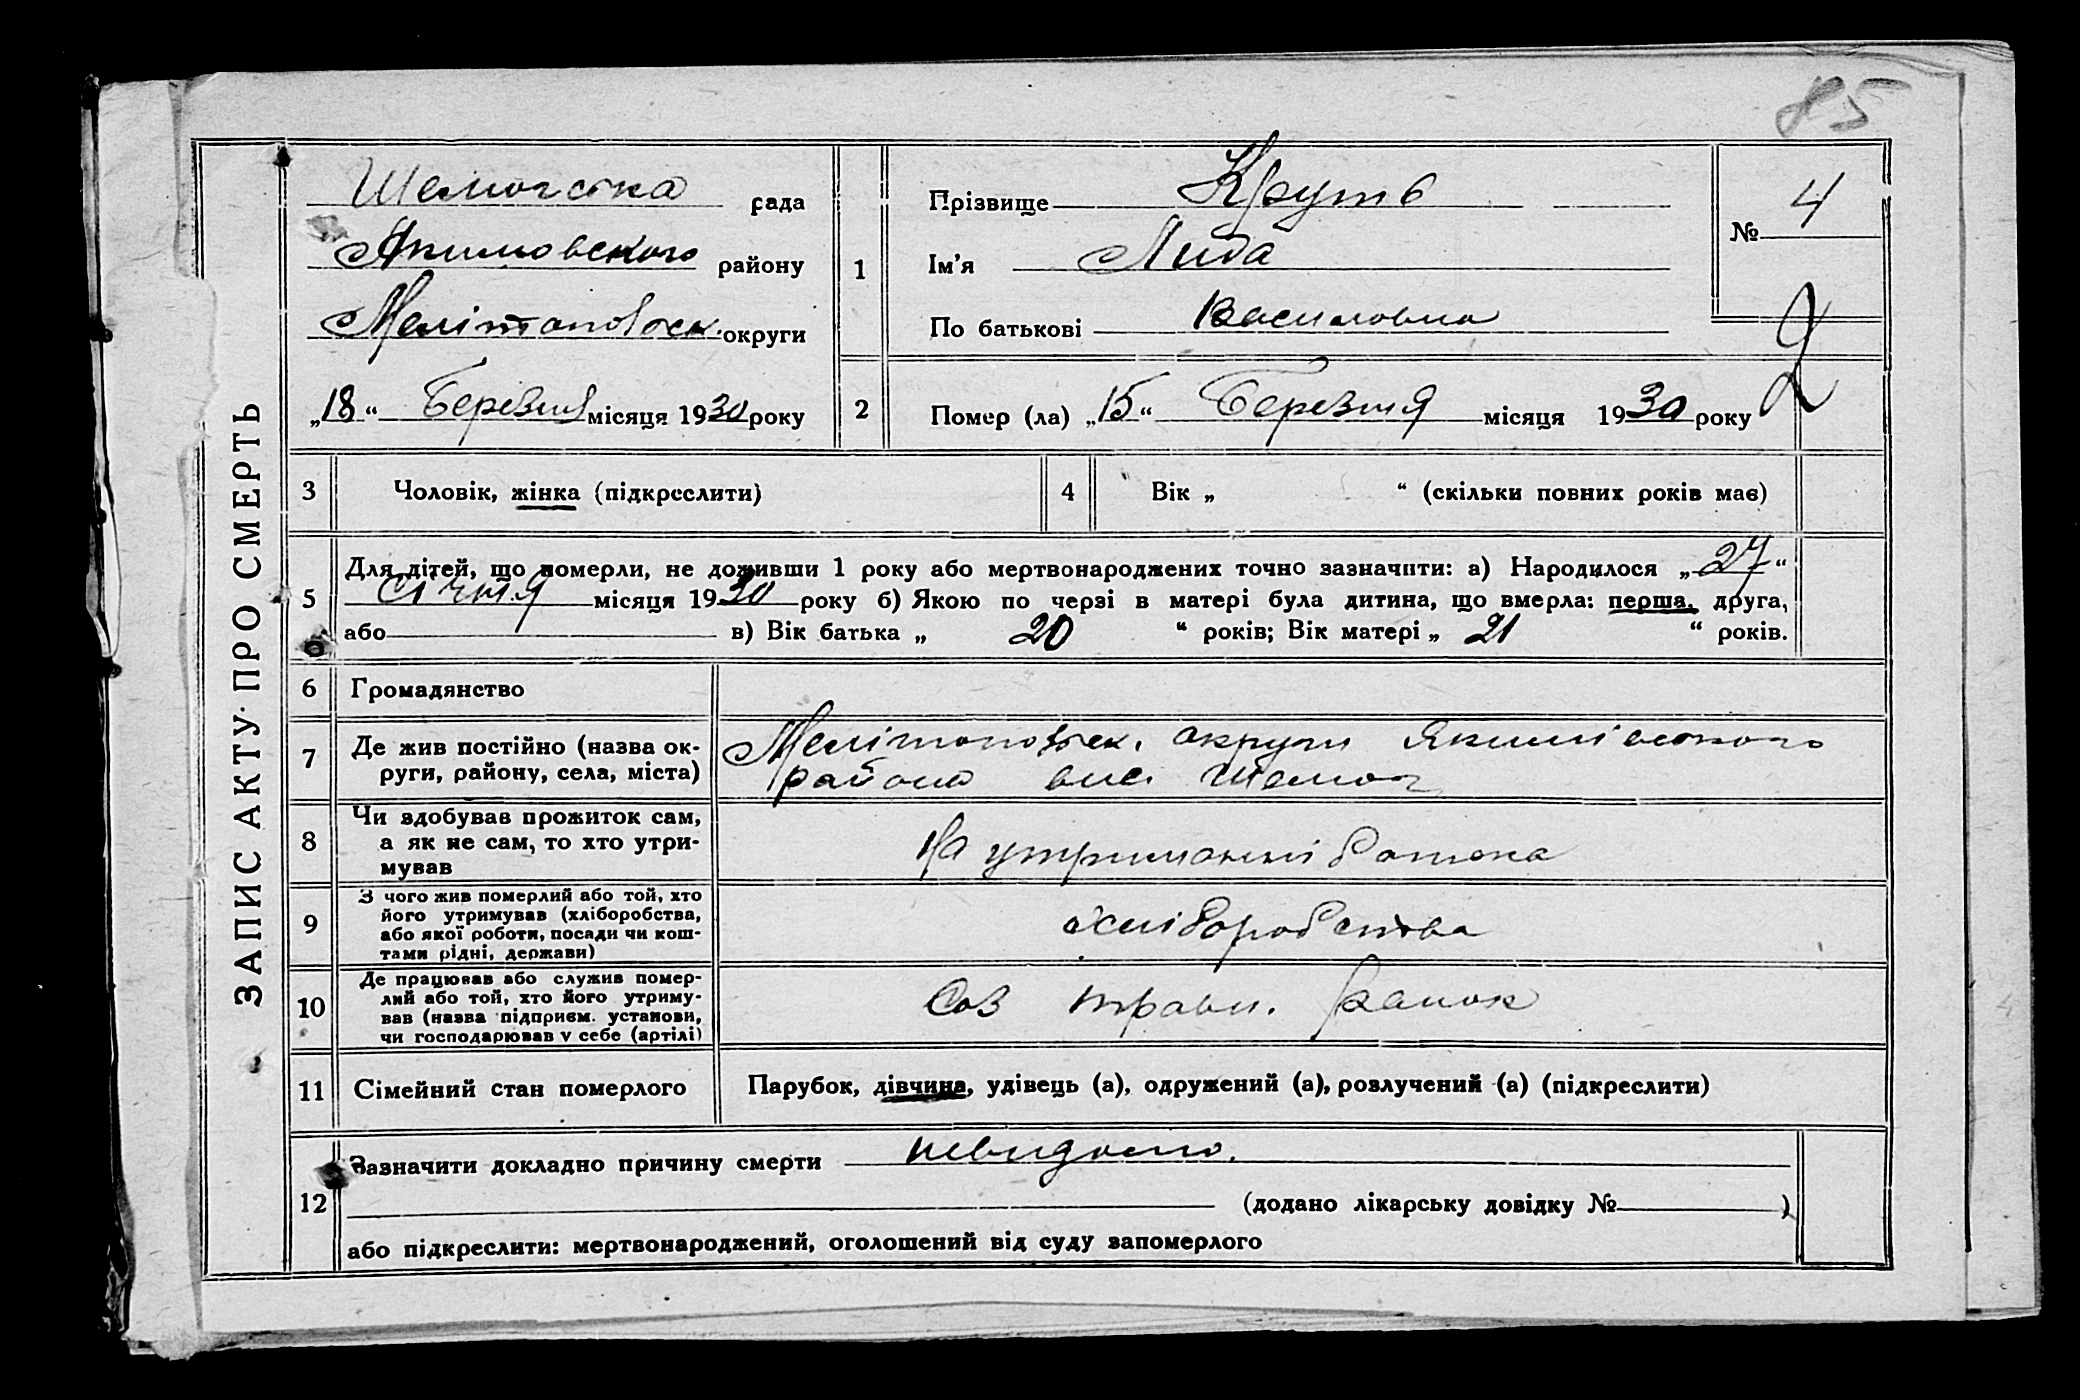 85
ЗАПИС АКТУ ПРО СМЕРТЬ
рада
Якимовского району
Мелітопольск. округи
„18“ Березня місяця 1930 року
1
Прізвище Круть
Ім’я Лида
По батькові Василовна
№ 4
2
2 Помер (ла) „15“ Березня місяця 1930 року
3 Чоловік, жінка (підкреслити)
4 Вік „ “ (скільки повних років має)
5 Для дітей, що померли, не доживши 1 року або мертвонароджених точно зазначити: а) Народилося „27“
Січня місяця 1930 року б) Якою по черзі в матері була дитина, що вмерла: перша, друга,
або в) Вік батька „ 20 “ років; Вік матері „ 21 “ років.
6 Громадянство
7 Де жив постійно (назва ок-
руги, району, села, міста)
Мелітопольск. округи Якимівського
района
8 Чи здобував прожиток сам,
а як не сам, то хто утри-
мував
На утриманні батька
9 З чого жив померлий або той, хто
його утримував (хліборобства,
або якої роботи, посади чи кош-
тами рідні, держави)
хліборобства
10 Де працював або служив помер-
лий або той, хто його утриму-
вав (назва підприєм. установи,
чи господарював у себе (артілі)
Соз
11 Сімейний стан померлого
Парубок, дівчина, удівець (а), одружений (а), розлучений (а) (підкреслити)
12 Зазначити докладно причину смерти невидомо.
(додано лікарську довідку № )
або підкреслити: мертвонароджений, оголошений від суду запомерлого